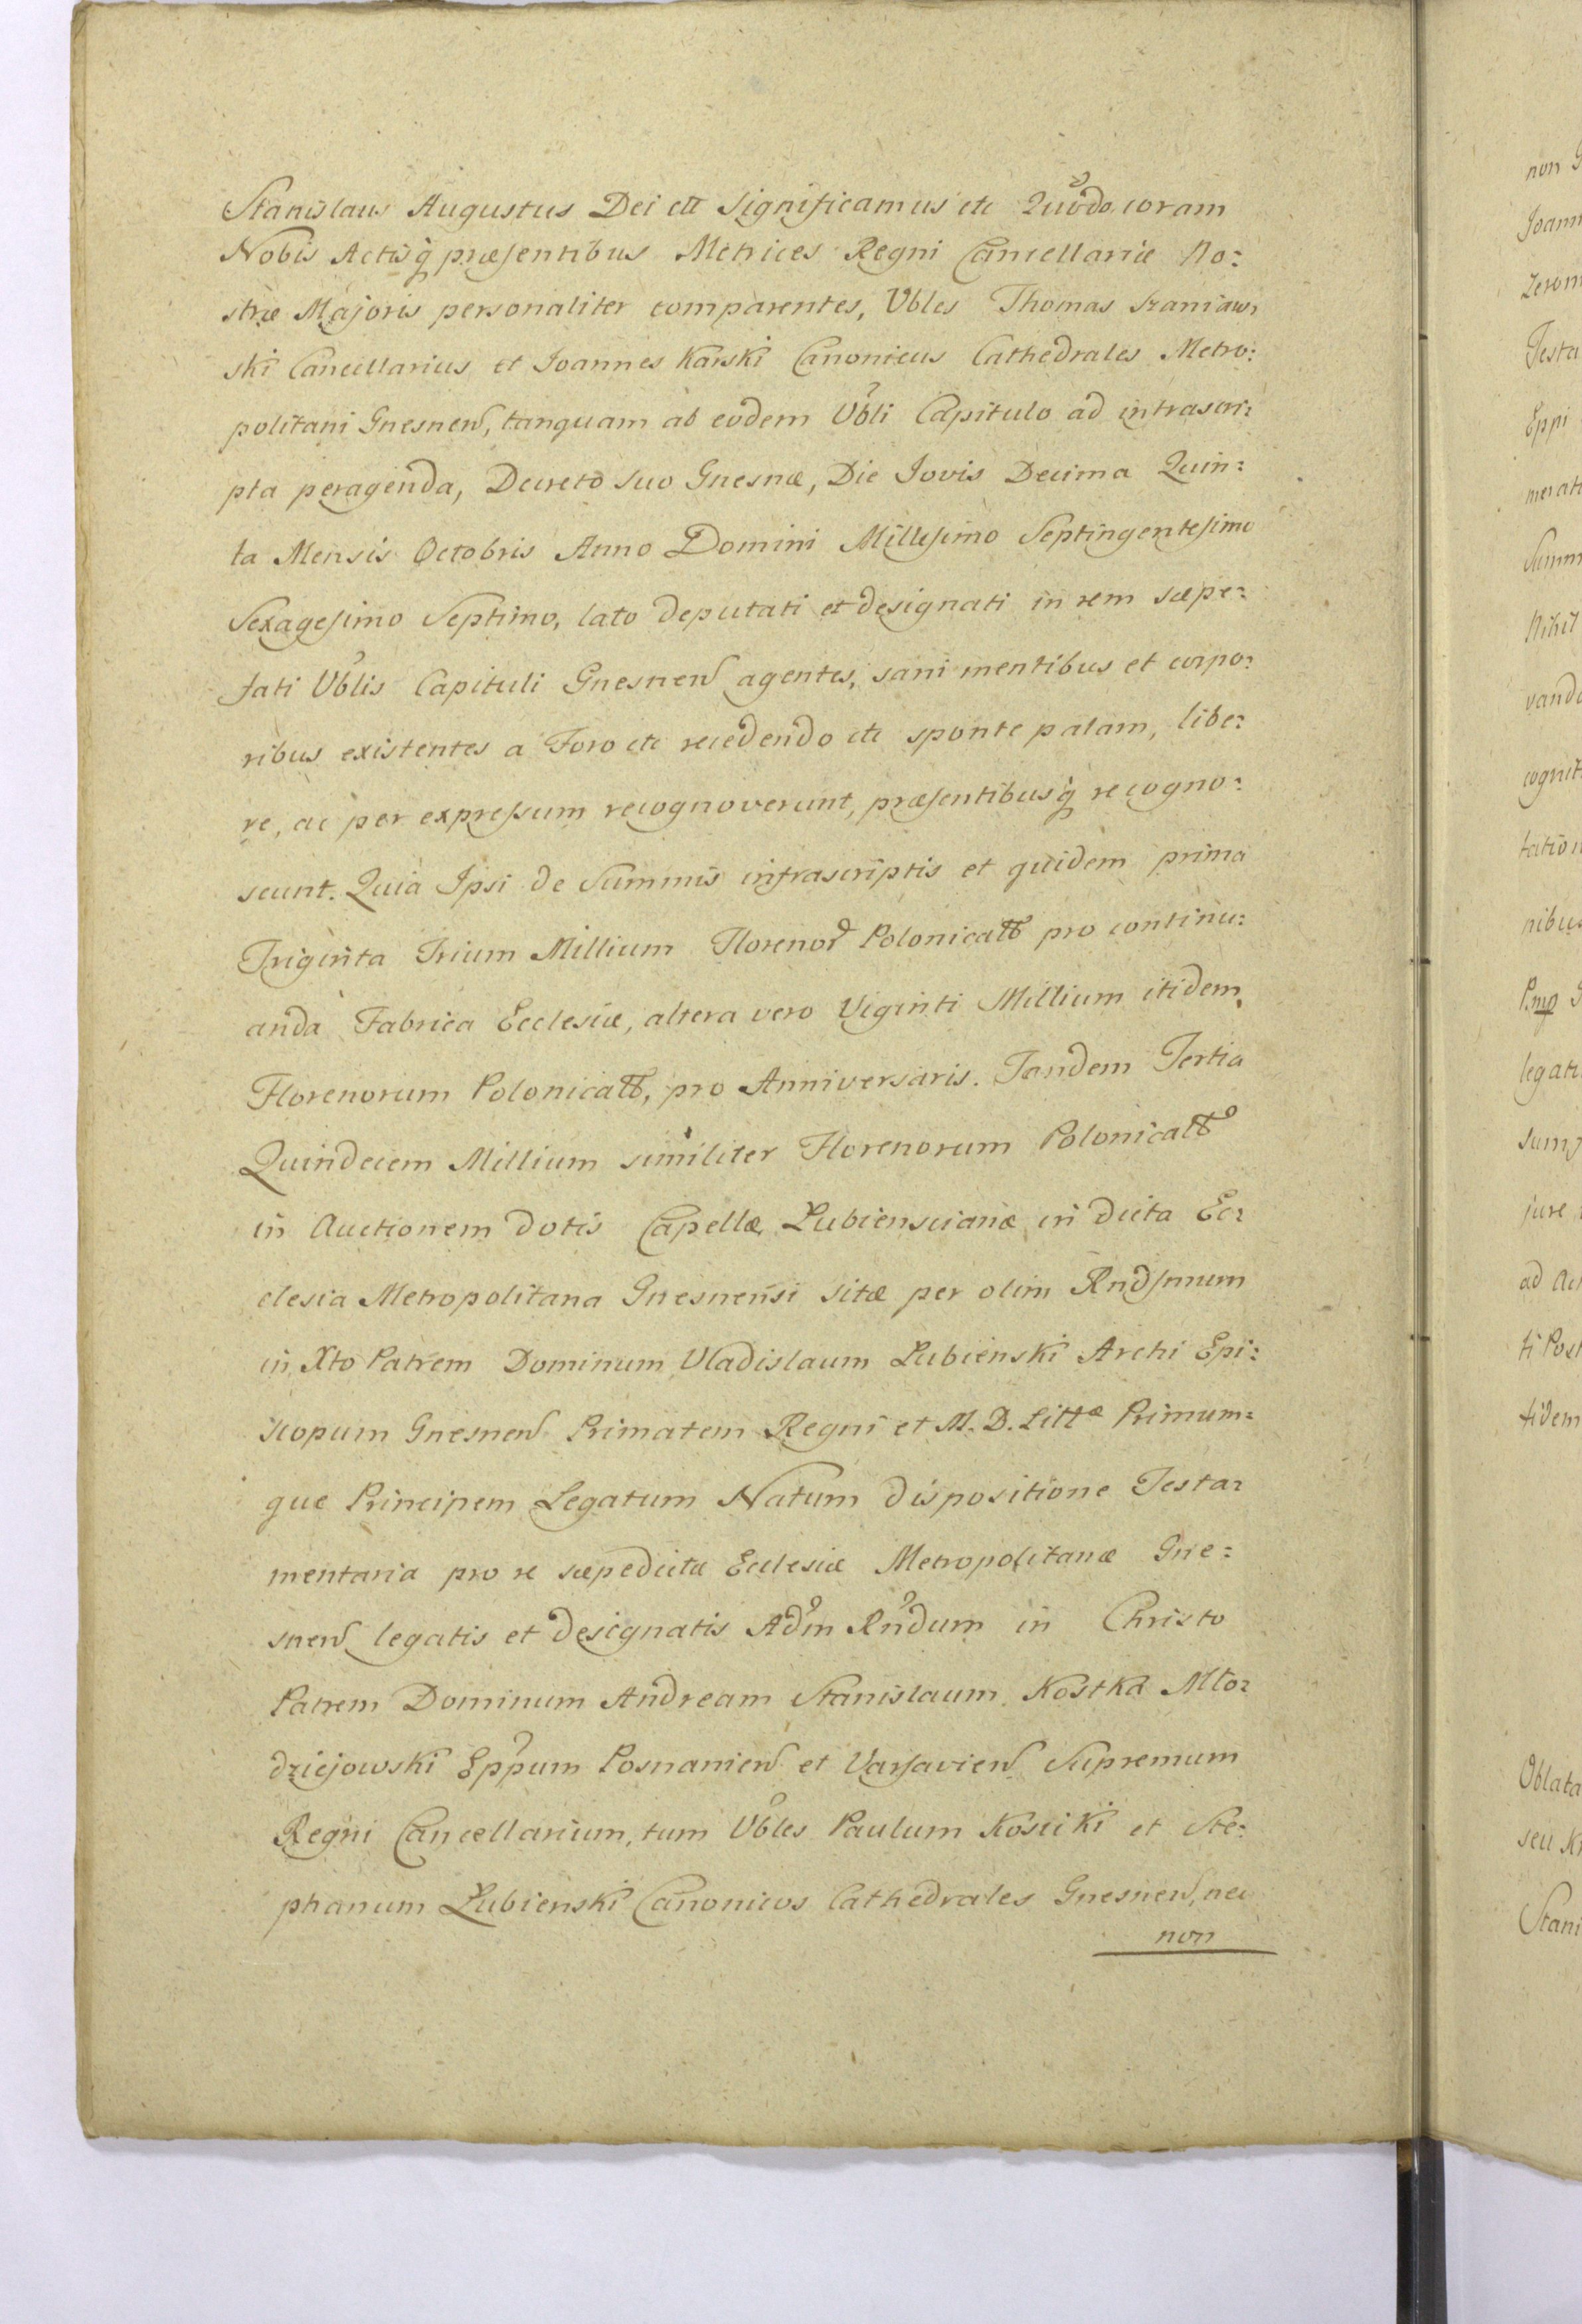 Stanislaus Augustus Dei ett Significamus etc Quodo coram
Nobis Actisq præsentibus Metrices Regni Cancellariæ No:
stræ Majoris personaliter comparentes, Vbles Thomas Szaniaw:
ski Cancellarius et Joannes Karski Canonicus Cathedrales Metro:
politani Gnesnen, tanquam ab eodem Vbli Capitulo ad infrascri:
pta peragenda, Decreto suo Gnesnæ, Die Jovis Decima Quin:
ta Mensis Octobris Anno Domini Millesimo Septingentesimo
Sexagesimo Septimo, lato deputati et designati in rem sæpe:
fati Vblis Capituli Gnesnen agentes, sani mentibus et corpo:
ribus existentes a Foro etc recedendo etc sponte palam, libe:
re, ac per expressum recognoverunt, præsentibusq recogno:
scunt. Quia Ipsi de Summis infrascriptis et quidem prima
Triginta Trium Millium Florenor Polonicalt pro continu:
anda Fabrica Ecclesiæ, altera vero Viginti Millium itidem
Florenorum Polonicalt, pro Anniversaris. Tandem Tertia
Quindecem Millium similiter Florenorum Polonicalt
in Auctionem dotis Capellæ Lubiensciana in dicta Ec:
clesia Metropolitana Gnesnensi sitæ per olim Rndsmum
in Xto Patrem Dominum Vladislaum Łubienski Archi Epi:
scopum Gnesnen Primatem Regni et M. D. Littæ Primum:
que Principem Legatum Natum dispositione Testa:
mentaria pro re sæpedictæ Ecclesiæ Metropolitanæ Gne:
snen legatis et designatis Adm Rndum in Christo
Patrem Dominum Andream Stanislaum Kostka Mło:
dziejowski Eppum Posnanien et Varsavien Supremum
Regni Cancellarium, tum Vbles Paulum Kosicki et Ste:
phanum Łubienski Canonicos Cathedrales Gnesnen, nec
non
non
Joann
Zerom
Testa
Eppi
merati
Summ
Nihil
vando
cognit
tation
nibus
Pmo
legati
sump
jure
ad Act
ti Post
fidem
Oblata
seu
Stani